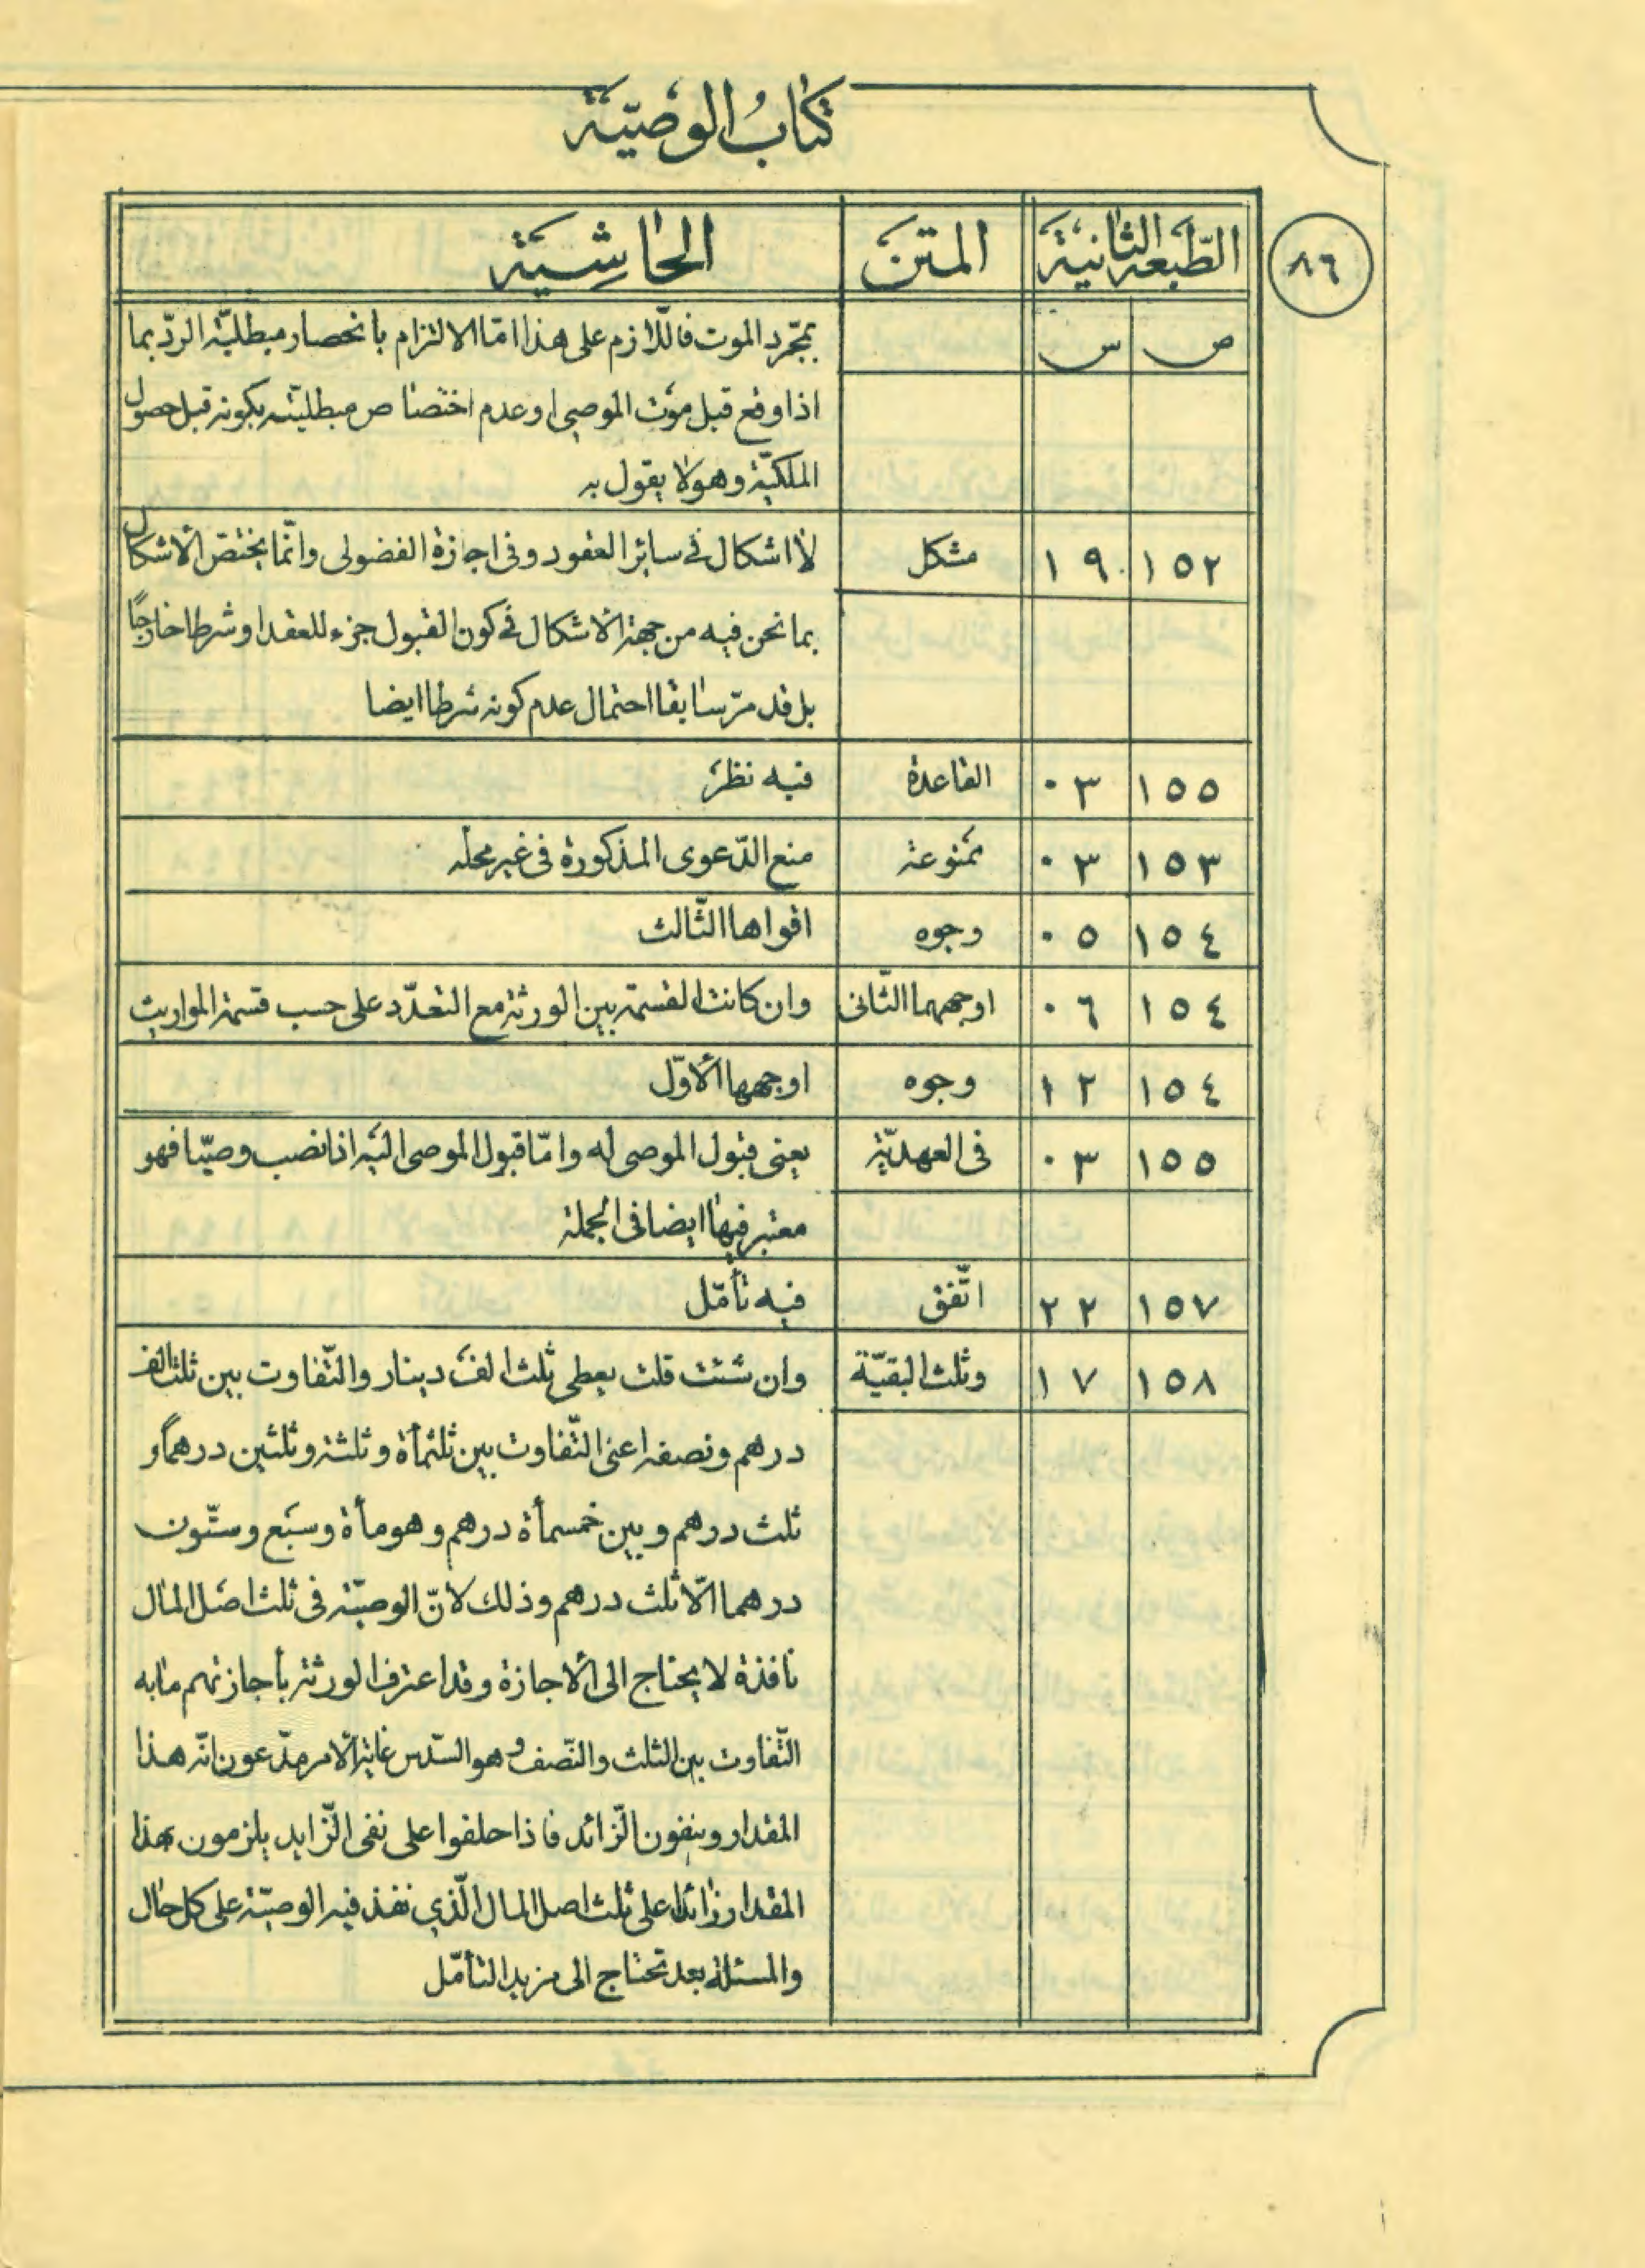 كتاب الوصيّة
٨٦
الطّبعة الثانية المتن الحاشية
ص س بمجرّد الموت فاللّازم على هذا امّا الالتزام بانحصار مبطليّة الردّ بما
اذا وقع قبل موت الموصى او عدم اختصاص مبطليّته بكونه قبل حصول
الملكيّة وهو لا يقول به
١٥٢ ١٩ مشكل لا اشكال في سائر العقود و في اجازة الفضولى وانّما يختصّ الاشكال
بما نحن فيه من جهة الاشكال في كون القبول جزء للعقد او شرطا خارجًا
بل قد مرّ سابقا احتمال عدم كونه شرطا ايضا
١٥٥ ٠٣ القاعدة فيه نظر
١٥٣ ٠٣ ممنوعة منع الدّعوى المذكورة فى غير محلّه
١٥٤ ٠٥ وجوه اقواها الثّالث
١٥٤ ٠٦ اوجههما الثّانى وان كانت القسمة بين الورثة مع التعدّد على حسب قسمة المواريث
١٥٤ ١٢ وجوه اوجهها الأوّل
١٥٥ ٠٣ فى العهديّة يعنى قبول الموصى له وامّا قبول الموصى اليه اذا نصب وصيّا فهو
معتبر فيها ايضا فى الجملة
١٥٧ ٢٢ اتّفق فيه تأمّل
١٥٨ ١٧ وثلث البقيّة وان شئت قلت يعطى ثلث الف دينار والتّفاوت بين ثلث الف
درهم ونصفه اعنى التّفاوت بين ثلثمأة وثلثة وثلثين درهمًا و
ثلث درهم وبين خمسمأة درهم وهو مأة وسبع وستّون
درهما الّا ثلث درهم وذلك لانّ الوصيّة فى ثلث اصل المال
نافذة لا يحتاج الى الاجازة وقد اعترف الورثة بأجازتهم ما به
التّفاوت بين الثلث والنّصف وهو السّدس غاية الأمر مدّعون انّه هذا
المقدار وينفون الزّائد فاذا حلفوا على نفى الزّايد يلزمون بهذا
المقدار زائدا على ثلث اصل المال الّذي نفذ فيه الوصيّة على كل حال
والمسئلة بعد تحتاج الى مزيد التأمّل